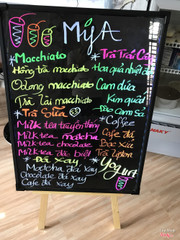 Mỳ A
Macchiato
Hồng trà macchiato
Ôlong macchiato
Trà lài macchiato
Trà Sữa
Milk tea truyền thống
Milk tea matcha
Milk tea chocolate
Milk tea đặc biệt
Đá Xay
Matcha đá xay
Chocolate đá xay
Cafe đá xay
Trà Trái Cây
Hoa quả nhiệt đới
Cam dứa
Kim quất
Đào Cam Sả
Coffee
Cafe đá
Bạc Xỉu
Trà Lipton
Yogurt